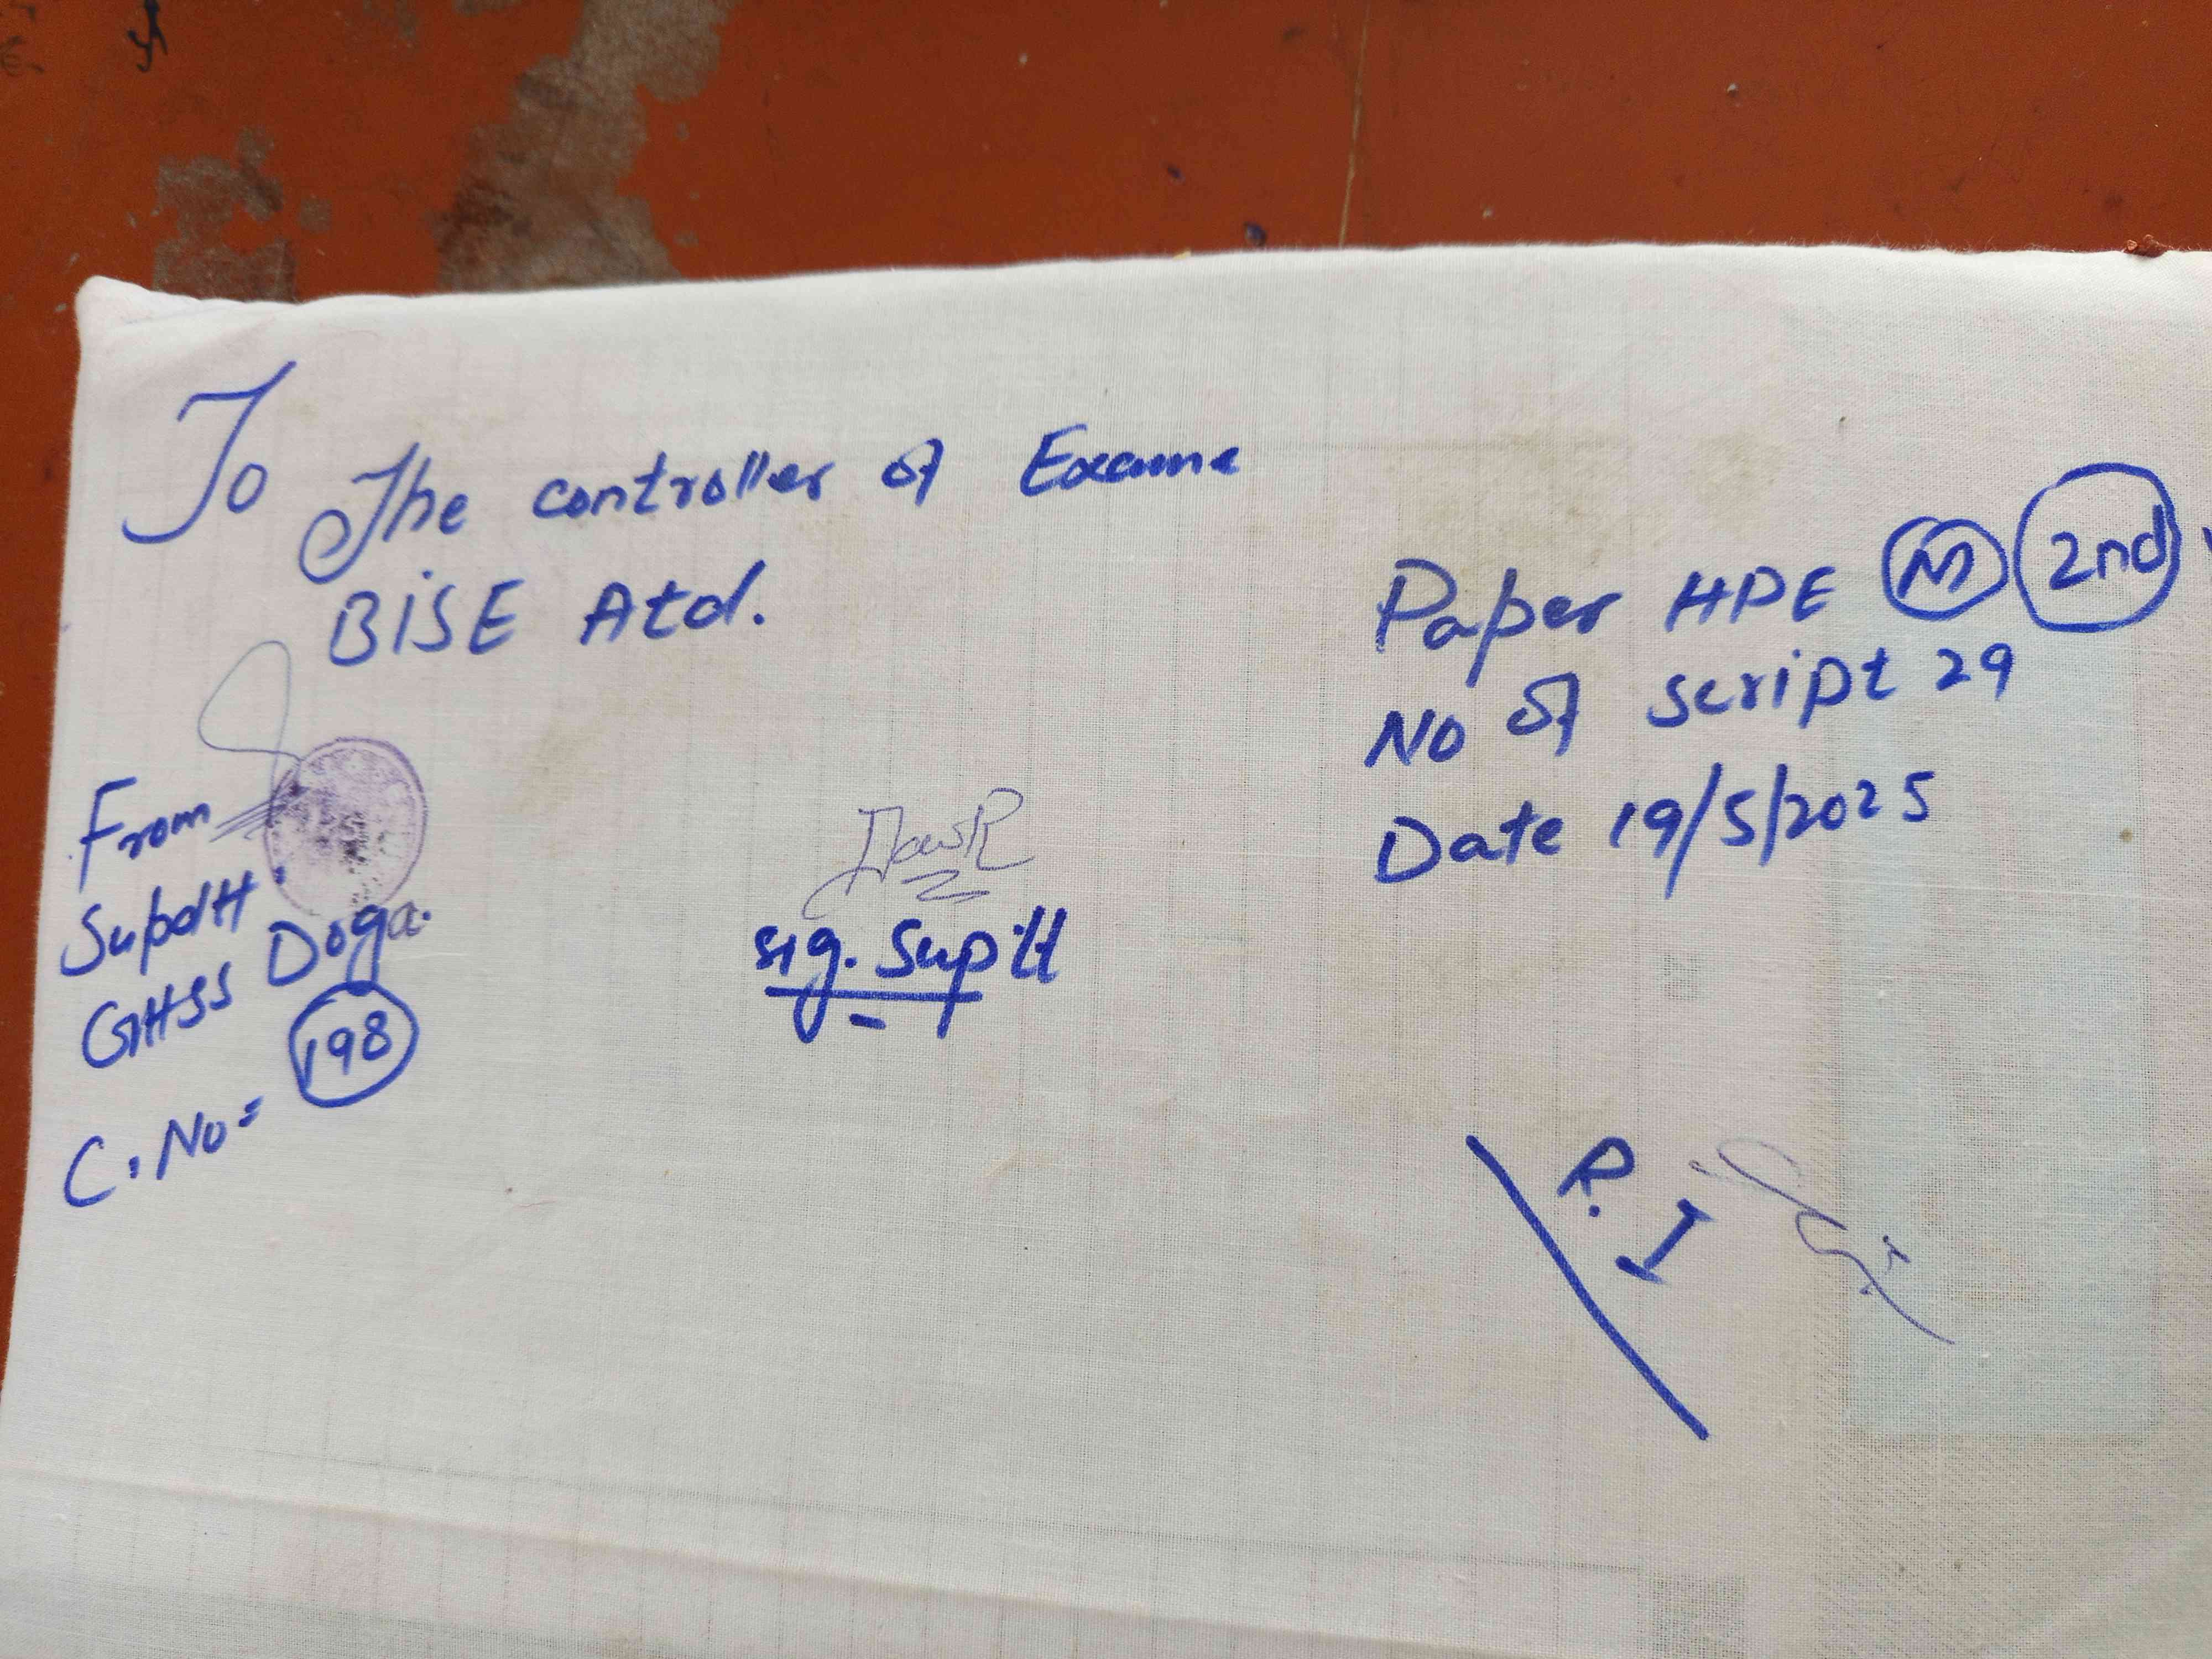 To
The controller of Exame
BiSE Atd.
Paper HPE M 2nd
No of script 29
Date 19/5/2025
From
Supdtt
GHSS Doga.
C. No = 198
sig. Suptt
R. I